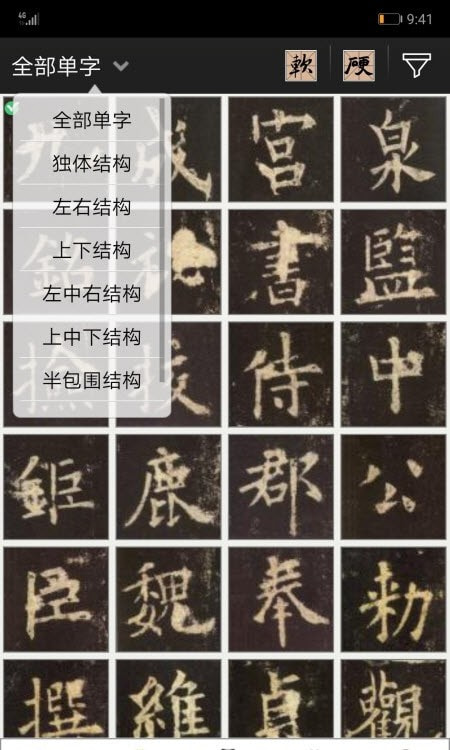 4G 9:41
全部单字 軟 硬
全部单字
独体结构
左右结构
上下结构
左中右结构
上中下结构
半包围结构
九 成 宫 泉
銘 祕 書 監
撿 挍 侍 中
鉅 鹿 郡 公
臣 魏 奉 勑
撰 維 貞 觀